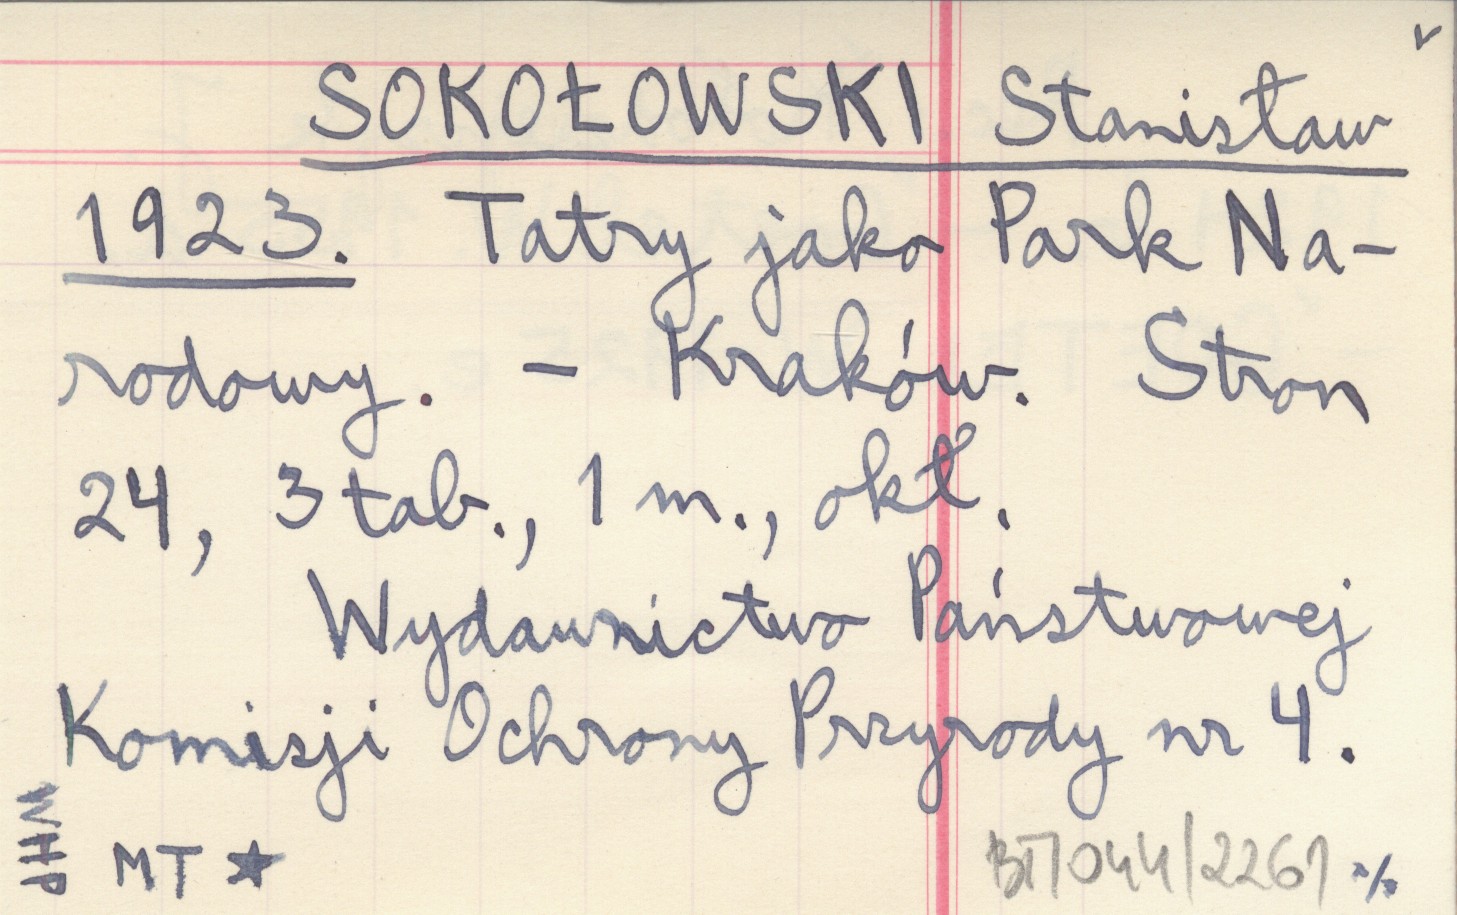 SOKOŁOWSKI Stanisław
1923. Tatry jako Park Na-
rodowy. – Kraków. Stron
24, 3 tab., 1 m., okł.
Wydawnictwo Państwowej
Komisji Ochrony Przyrody nr 4.
WHP
MT ★
BT/044/2261 %